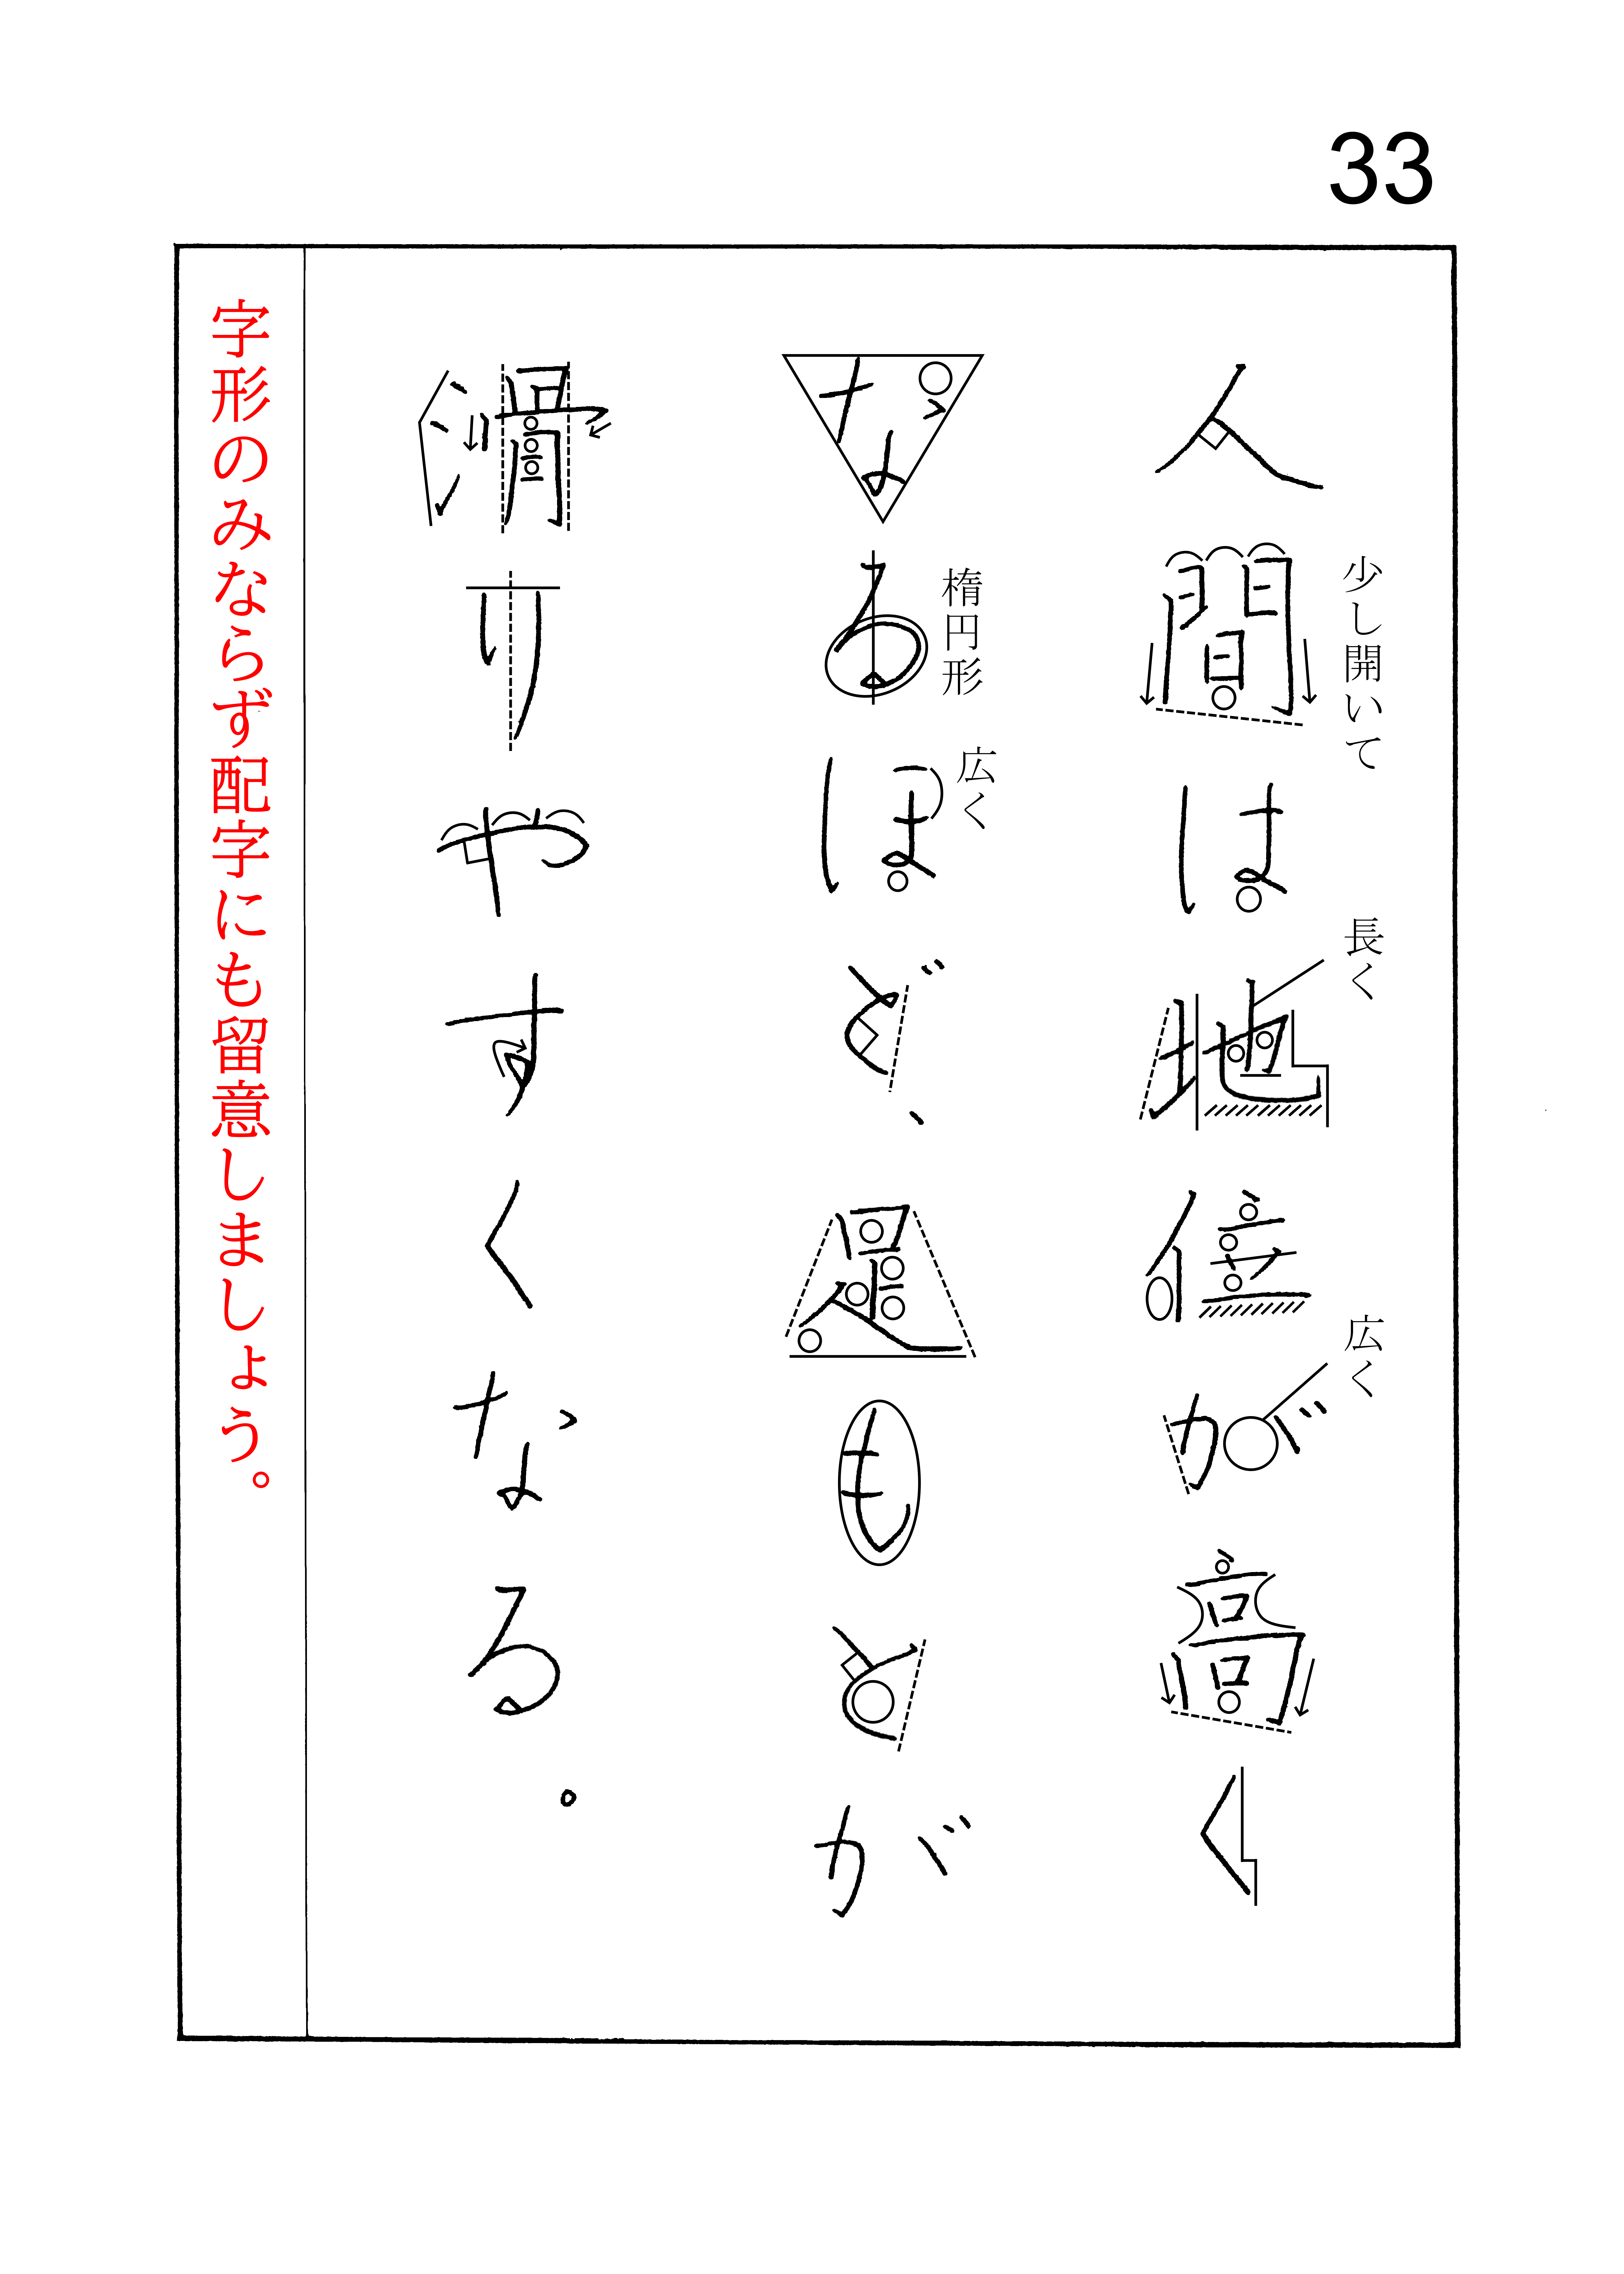 33
少し開いて
長く
広く
人間は地位が高く
楕円形
広く
なるほど、足もとが
滑りやすくなる。
字形のみならず配字にも留意しましょう。